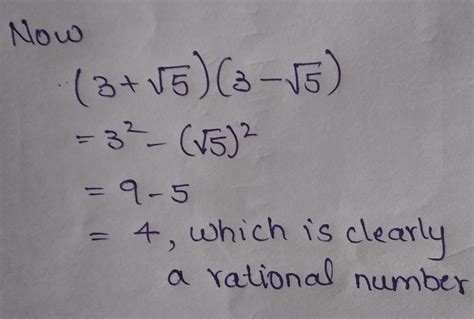 Now
(3+√5)(3-√5)
= 3² - (√5)²
= 9-5
= 4, which is clearly
a rational number